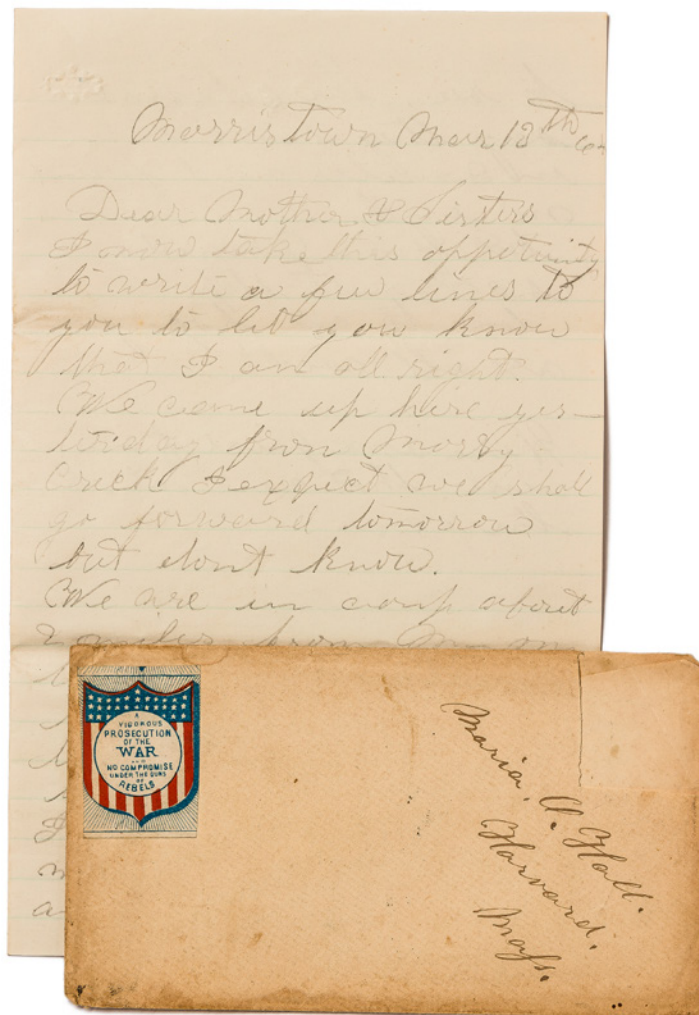 Morristown Mar 13th
Dear Mother & Sisters
I now take this oppotunity
to write a few lines to
you to let you know
that I am all right.
We came up here yes-
terday from Mossy
Creek I expect we shall
go forward tomorrow
but dont know.
We are in camp about
2 miles from
A
VIGOROUS
PROSECUTION
OF THE
WAR
AND
NO COMPROMISE
UNDER THE GUNS
OF
REBELS
Maria. A. Hall.
Harvard.
Mass.